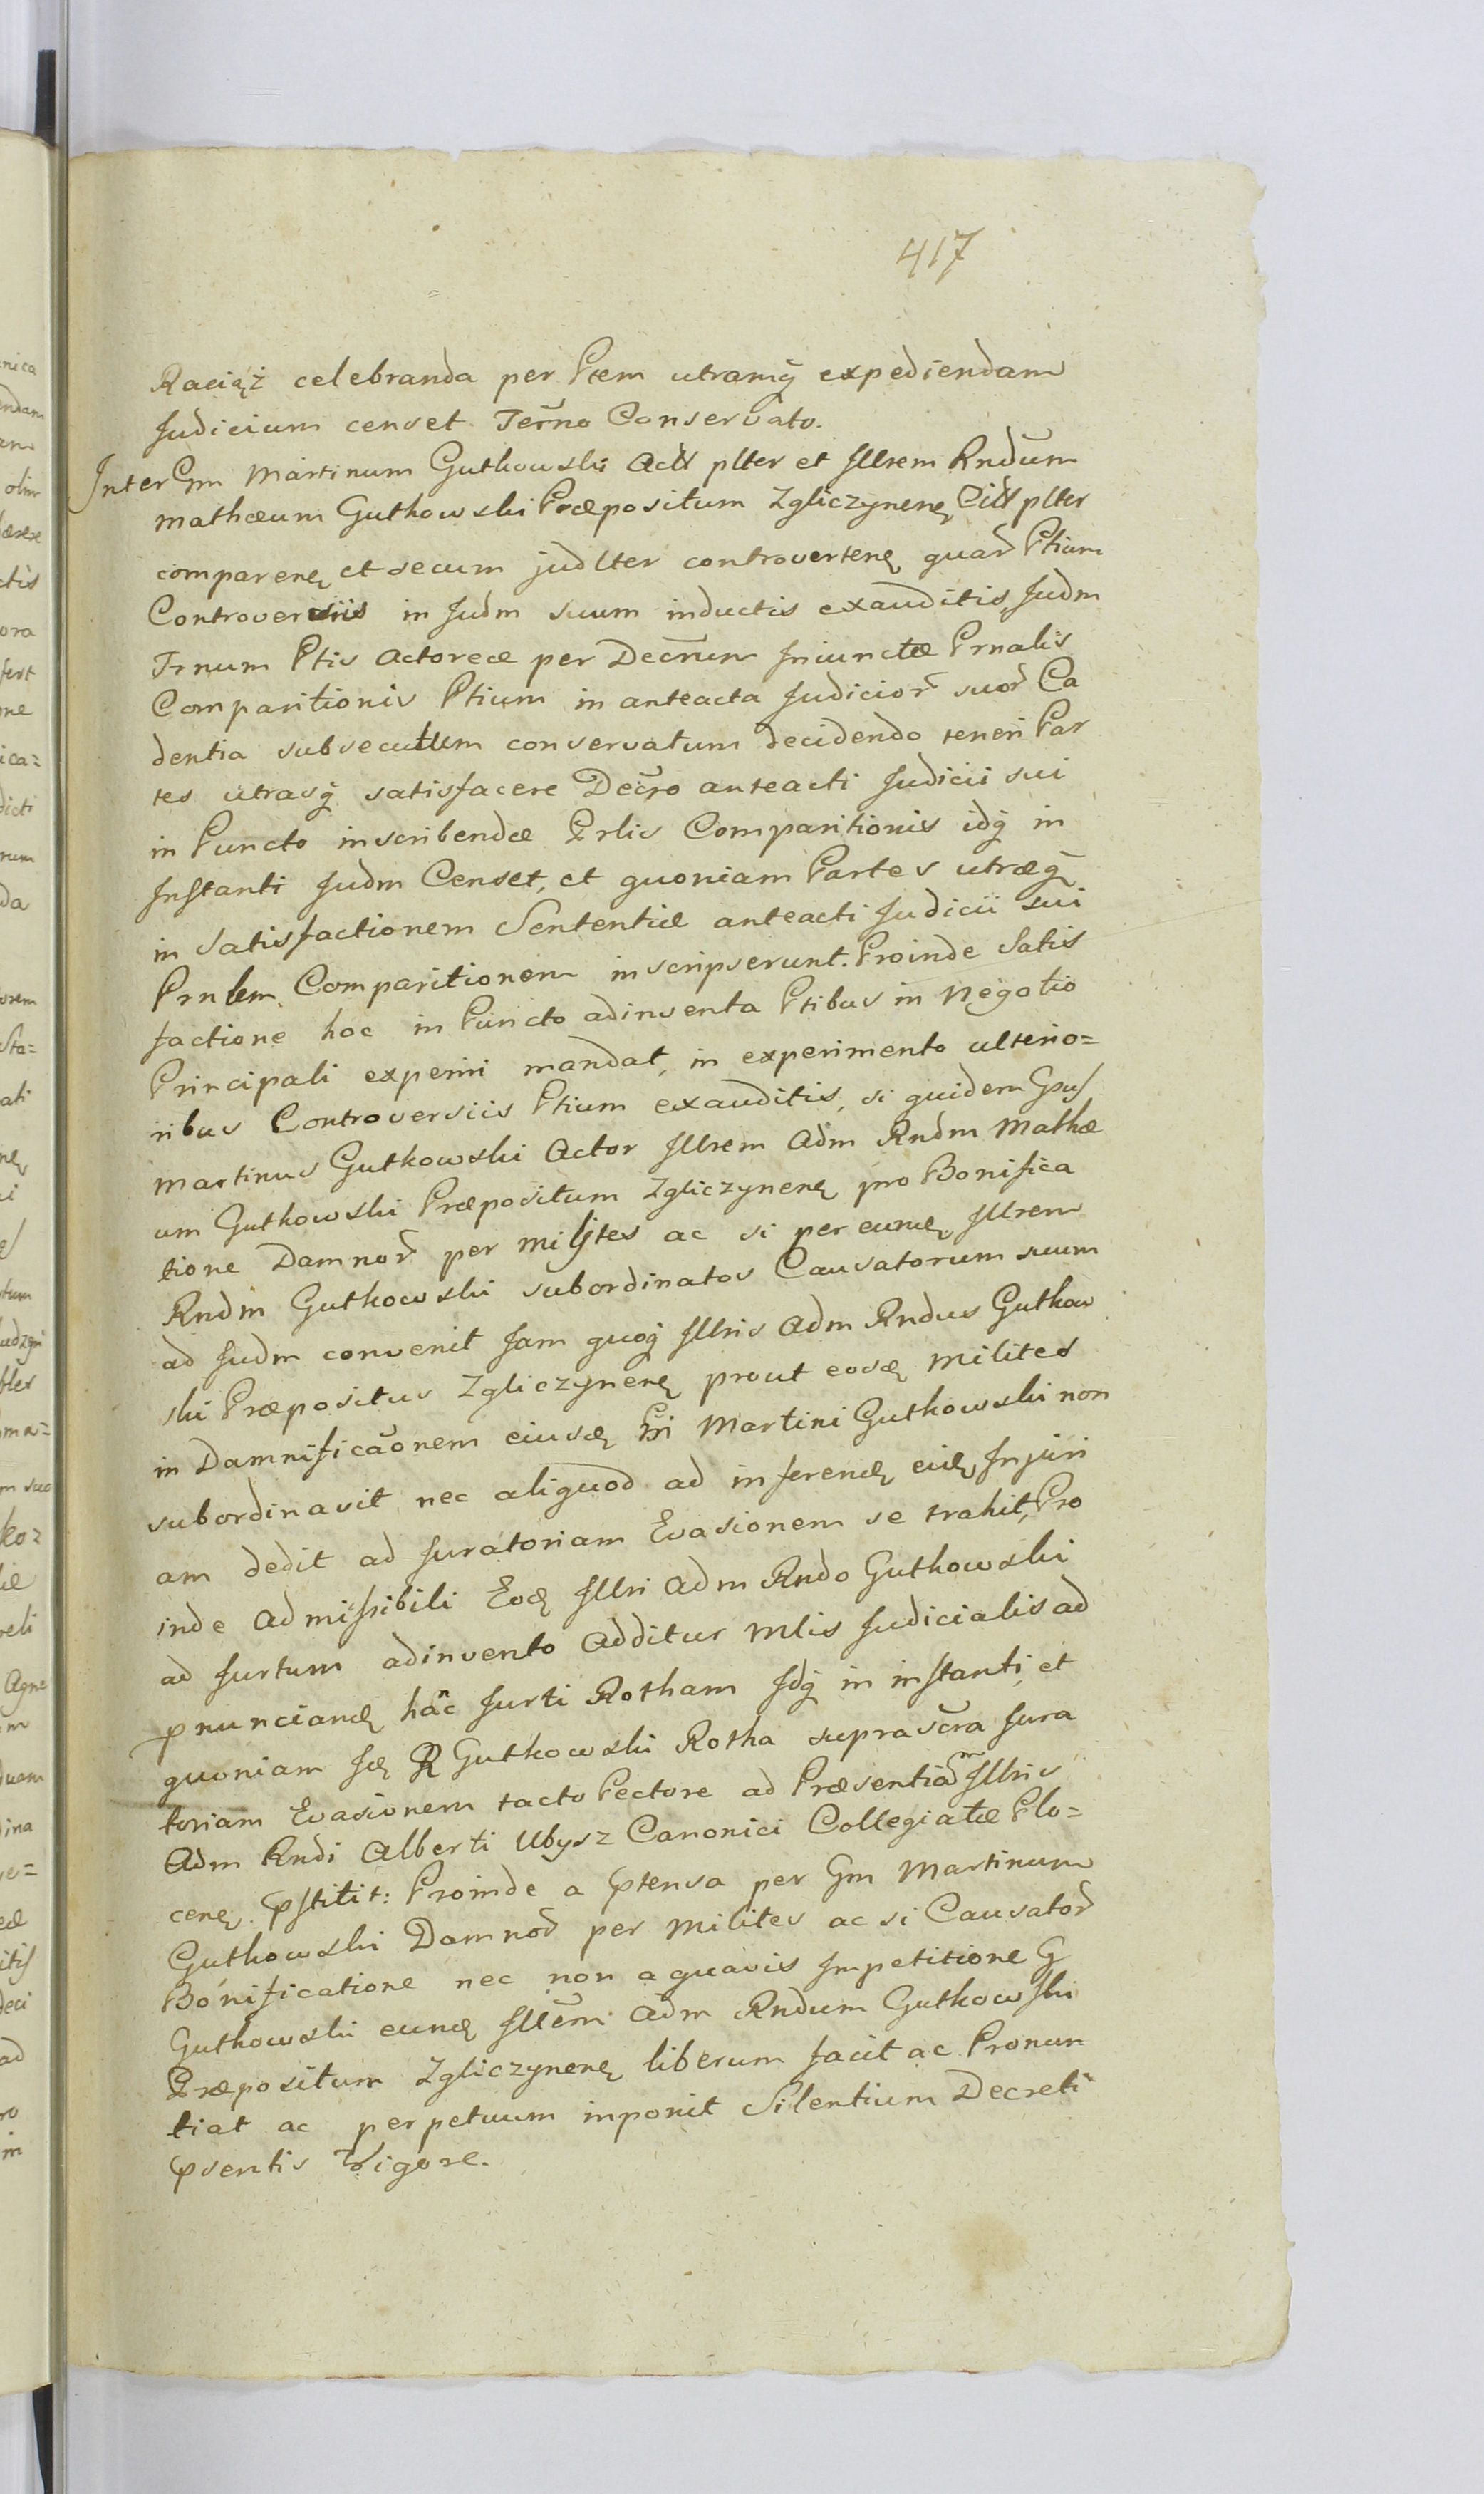 417
Raciąż celebranda per Ptem utramq̃ expediendam
Judicium censet Termo Conservato.
Inter Gm Martinum Gutkowski Act plter et Jllrem Rndum
Mathæum Gutkowski Præpositum Zgliczynenę Citt plter
comparenę et secum judlter controvertenę quar Ptium
Controversiis in Judm suum inductis exauditis, Judm
Trnum Ptis Actoreæ per Decrum Jniunctæ Prnalis
Comparitionis Ptium in anteacta Judicior suor Ca
dentia subsecutum conservatum decidendo teneri Par
tes utrasq̃ satisfacere Decro anteacti Judicii sui
in Puncto inscribendæ Prlis Comparitionis idq̃ in
Jnstanti Judm Censet, et quoniam Partes utræq̃
in Satisfactionem Sententiæ anteacti Judicii sui
Prnlem Comparitionem inscripserunt. Proinde Satis
factione hoc in Puncto adinventa Ptibus in Negotio
Principali experiri mandat, in experimento ulterio=
ribus Controversiis Ptium exauditis, si quidem Gsus
Martinus Gutkowski Actor Jllrem Adm Rndm Mathæ
um Gutkowski Præpositum Zgliczynenę pro Bonifica
tione Damnor per Milites ac si per eundę Jllrem
Rndm Gutkowski subordinatos Causatorum suum
ad Judm convenit Jam quoq̃ Jllris Adm Rndus Gutkow
ski Præpositus Zgliczynenę prout eosdę Milites
in Damnificãonem eiusdę Gi Martini Gutkowski non
subordinavit nec aliquod ad inferendę eidę Jnjuri
am dedit ad Juratoriam Evasionem se trahit, Pro
inde Admissibili Eodę Jllri Adm Rndo Gutkowski
ad Jurtum adinvento Additur Mlis Judicialis ad
pnunciandę hãc Jurti Rotham Jdq̃ in instanti, et
quoniam Jdę R Gutkowski Rotha suprascra Jura
toriam Evasionem tacto Pectore ad Præsentiam Jllris
Adm Rndi Alberti Ubysz Canonici Collegiatæ Plo=
cenę pstitit: Proinde a ptensa per Gm Martinum
Gutkowski Damnor per Milites ac si Causator
Bonificatione nec non a quavis Jmpetitione G
Gutkowski eundę Jllem Adm Rndum Gutkowski
Præpositum Zgliczynenę liberum facit ac Pronun
tiat ac perpetuum inponit Silentium Decreti
psentis Vigore.